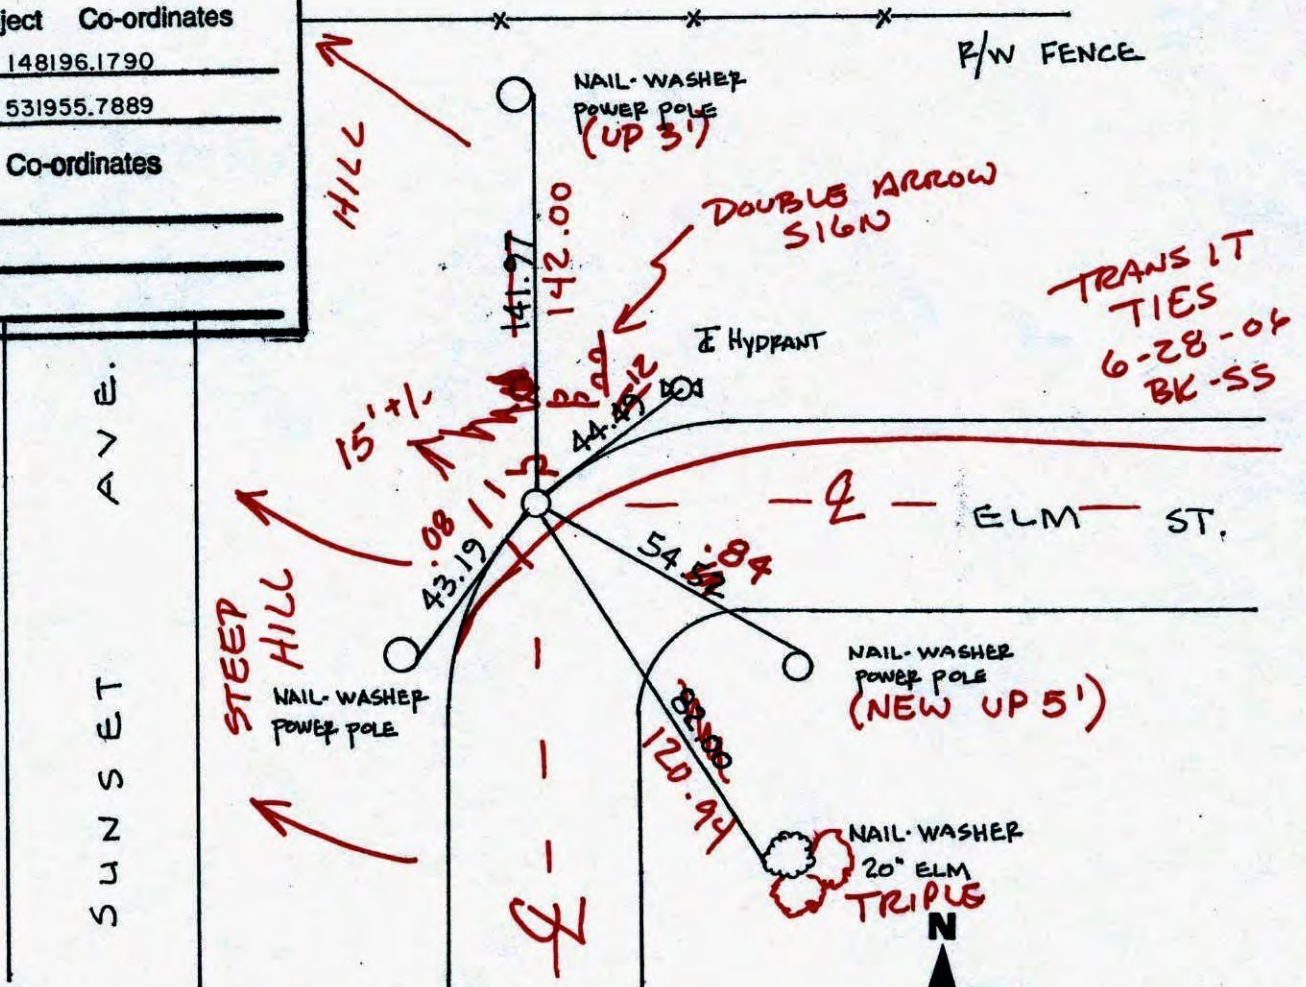 ject Co-ordinates
148196.1790
531955.7889
Co-ordinates
R/W FENCE
NAIL-WASHER
POWER POLE
(UP 3')
HILL
DOUBLE ARROW
SIGN
141.97
142.00
TRANSIT
TIES
6-28-06
BK-SS
℄ HYDRANT
15' +/-
44.49
.12
SUNSET AVE.
℄
ELM ST.
.08
43.19
54.52
.84
STEEP
HILL
NAIL-WASHER
POWER POLE
NAIL-WASHER
POWER POLE
(NEW UP 5')
82.00
120.94
NAIL-WASHER
20" ELM
TRIPLE
℄
N